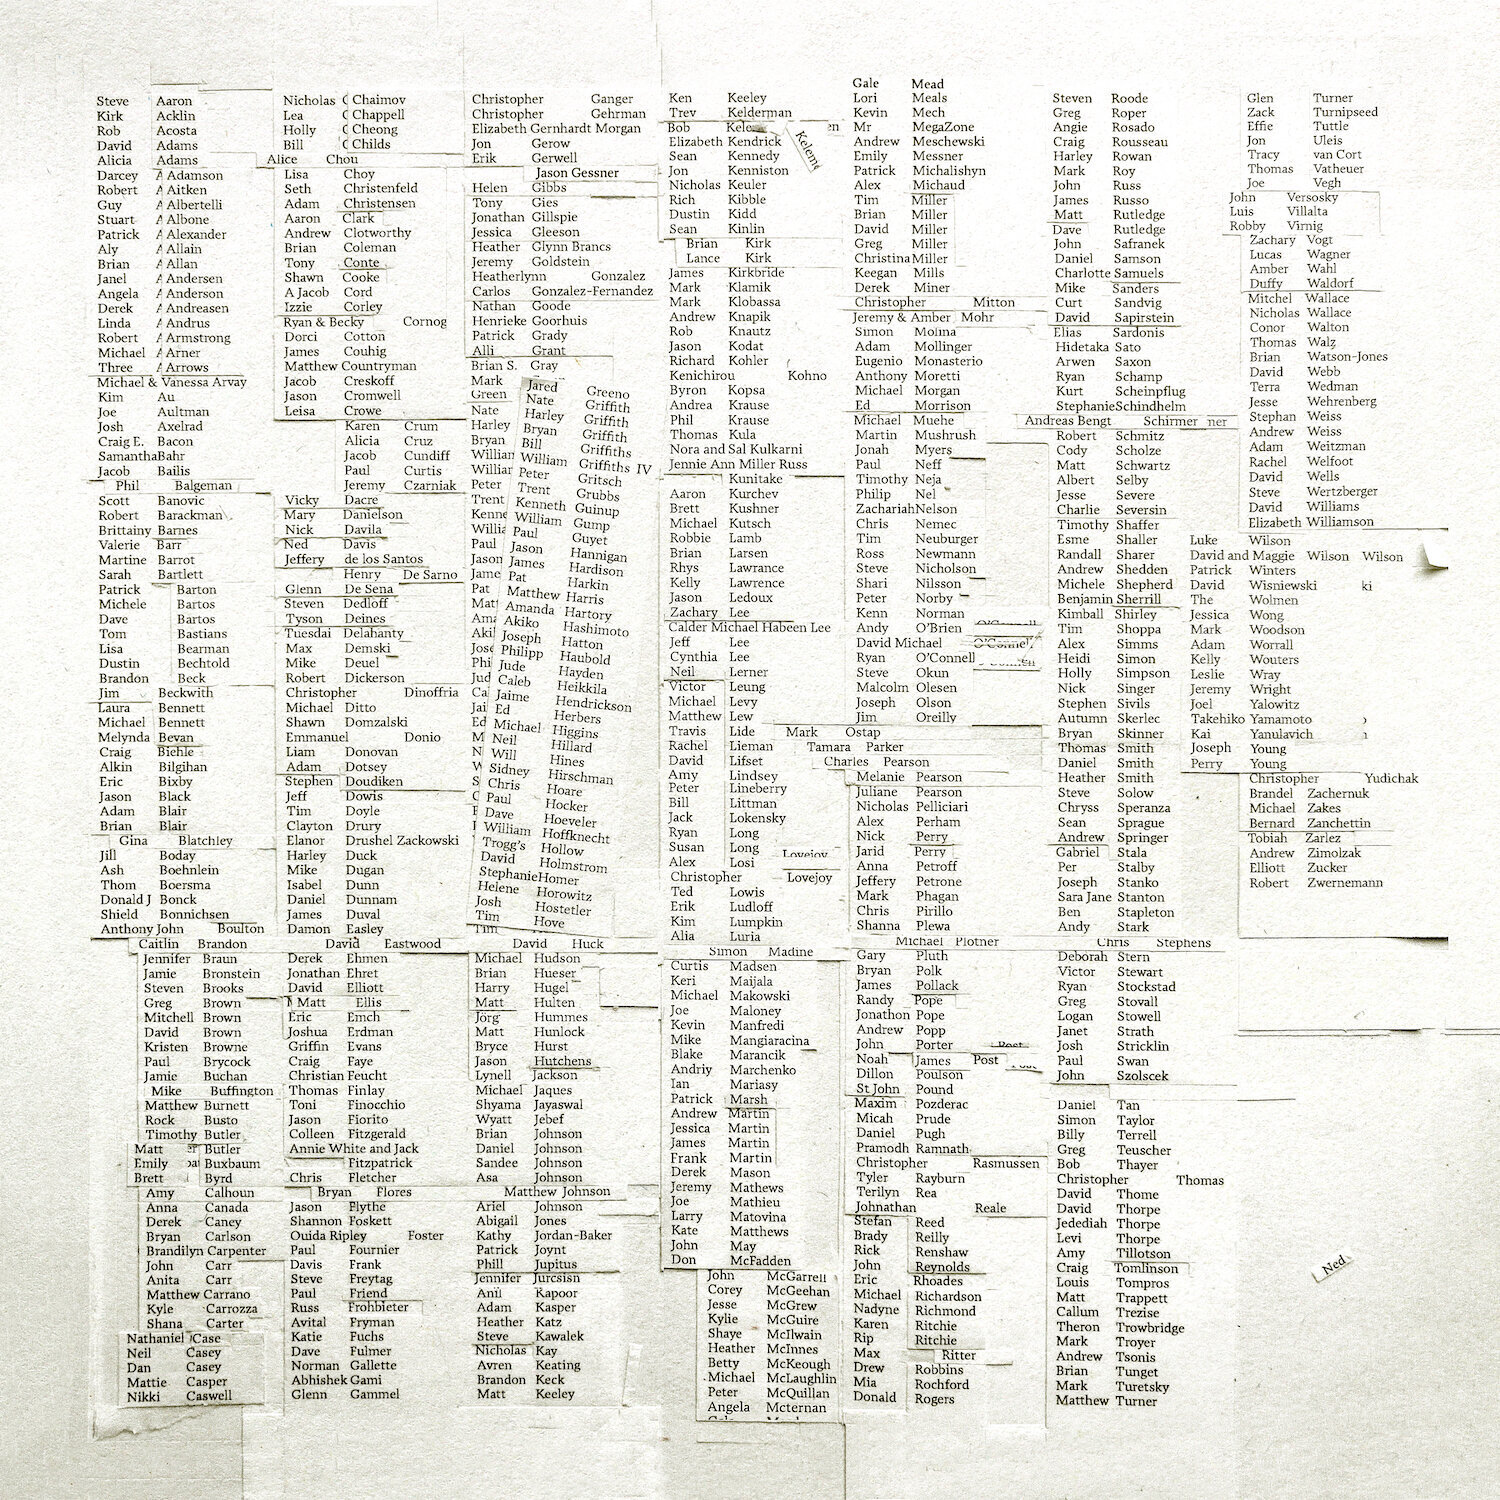 Steve Aaron
Kirk Acklin
Rob Acosta
David Adams
Alicia Adams
Darcey Adamson
Robert Aitken
Guy Albertelli
Stuart Albone
Patrick Alexander
Aly Allain
Brian Allan
Janel Andersen
Angela Anderson
Derek Andreasen
Linda Andrus
Robert Armstrong
Michael Arner
Three Arrows
Michael & Vanessa Arvay
Kim Au
Joe Aultman
Josh Axelrad
Craig E. Bacon
Samantha Bahr
Jacob Bailis
Phil Balgeman
Scott Banovic
Robert Barackman
Brittainy Barnes
Valerie Barr
Martine Barrot
Sarah Bartlett
Patrick Barton
Michele Bartos
Dave Bartos
Tom Bastians
Lisa Bearman
Dustin Bechtold
Brandon Beck
Jim Beckwith
Laura Bennett
Michael Bennett
Melynda Bevan
Craig Biehle
Alkin Bilgihan
Eric Bixby
Jason Black
Adam Blair
Brian Blair
Gina Blatchley
Jill Boday
Ash Boehnlein
Thom Boersma
Donald J Bonck
Shield Bonnichsen
Anthony John Boulton
Caitlin Brandon
Jennifer Braun
Jamie Bronstein
Steven Brooks
Greg Brown
Mitchell Brown
David Brown
Kristen Browne
Paul Brycock
Jamie Buchan
Mike Buffington
Matthew Burnett
Rock Busto
Timothy Butler
Matt Butler
Emily Buxbaum
Brett Byrd
Amy Calhoun
Anna Canada
Derek Caney
Bryan Carlson
Brandilyn Carpenter
John Carr
Anita Carr
Matthew Carrano
Kyle Carrozza
Shana Carter
Nathaniel Case
Neil Casey
Dan Casey
Mattie Casper
Nikki Caswell
Nicholas Chaimov
Lea Chappell
Holly Cheong
Bill Childs
Alice Chou
Lisa Choy
Seth Christenfeld
Adam Christensen
Aaron Clark
Andrew Clotworthy
Brian Coleman
Tony Conte
Shawn Cooke
A Jacob Cord
Izzie Corley
Ryan & Becky Cornog
Dorci Cotton
James Couhig
Matthew Countryman
Jacob Creskoff
Jason Cromwell
Leisa Crowe
Karen Crum
Alicia Cruz
Jacob Cundiff
Paul Curtis
Jeremy Czarniak
Vicky Dacre
Mary Danielson
Nick Davila
Ned Davis
Jeffery de los Santos
Henry De Sarno
Glenn De Sena
Steven Dedloff
Tyson Deines
Tuesdai Delahanty
Max Demski
Mike Deuel
Robert Dickerson
Christopher Dinoffria
Michael Ditto
Shawn Domzalski
Emmanuel Donio
Liam Donovan
Adam Dotsey
Stephen Doudiken
Jeff Dowis
Tim Doyle
Clayton Drury
Elanor Drushel Zackowski
Harley Duck
Mike Dugan
Isabel Dunn
Daniel Dunnam
James Duval
Damon Easley
David Eastwood
Derek Ehmen
Jonathan Ehret
David Elliott
Matt Ellis
Eric Emch
Joshua Erdman
Griffin Evans
Craig Faye
Christian Feucht
Thomas Finlay
Toni Finocchio
Jason Fiorito
Colleen Fitzgerald
Annie White and Jack
Fitzpatrick
Chris Fletcher
Bryan Flores
Jason Flythe
Shannon Foskett
Ouida Ripley Foster
Paul Fournier
Davis Frank
Steve Freytag
Paul Friend
Russ Frohbieter
Avital Fryman
Katie Fuchs
Dave Fulmer
Norman Gallette
Abhishek Gami
Glenn Gammel
Christopher Ganger
Christopher Gehrman
Elizabeth Gernhardt Morgan
Jon Gerow
Erik Gerwell
Jason Gessner
Helen Gibbs
Tony Gies
Jonathan Gillspie
Jessica Gleeson
Heather Glynn Brancs
Jeremy Goldstein
Heatherlynn Gonzalez
Carlos Gonzalez-Fernandez
Nathan Goode
Henrieke Goorhuis
Patrick Grady
Alli Grant
Brian S. Gray
Mark
Green
Nate
Harley
Bryan
Peter
Trent
Paul
Jason
Pat
Jared Greeno
Nate Griffith
Harley Griffith
Bryan Griffith
Bill Griffiths
William Griffiths IV
Peter Gritsch
Trent Grubbs
Kenneth Guinup
William Gump
Paul Guyet
Jason Hannigan
James Hardison
Pat Harkin
Matthew Harris
Amanda Hartory
Akiko Hashimoto
Joseph Hatton
Philipp Haubold
Jude Hayden
Caleb Heikkila
Jaime Hendrickson
Ed Herbers
Michael Higgins
Neil Hillard
Will Hines
Sidney Hirschman
Chris Hoare
Paul Hocker
Dave Hoeveler
William Hoffknecht
Trogg's Hollow
David Holmstrom
Stephanie Homer
Helene Horowitz
Josh Hostetler
Tim Hove
David Huck
Michael Hudson
Brian Hueser
Harry Hugel
Matt Hulten
Jörg Hummes
Matt Hunlock
Bryce Hurst
Jason Hutchens
Lynell Jackson
Michael Jaques
Shyama Jayaswal
Wyatt Jebef
Brian Johnson
Daniel Johnson
Sandee Johnson
Asa Johnson
Matthew Johnson
Ariel Johnson
Abigail Jones
Kathy Jordan-Baker
Patrick Joynt
Phill Jupitus
Jennifer Jurcsisn
Anil Kapoor
Adam Kasper
Heather Katz
Steve Kawalek
Nicholas Kay
Avren Keating
Brandon Keck
Matt Keeley
Ken Keeley
Trev Kelderman
Bob
Elizabeth Kendrick
Sean Kennedy
Jon Kenniston
Nicholas Keuler
Rich Kibble
Dustin Kidd
Sean Kinlin
Brian Kirk
Lance Kirk
James Kirkbride
Mark Klamik
Mark Klobassa
Andrew Knapik
Rob Knautz
Jason Kodat
Richard Kohler
Kenichirou Kohno
Byron Kopsa
Andrea Krause
Phil Krause
Thomas Kula
Nora and Sal Kulkarni
Jennie Ann Miller Russ
Kunitake
Aaron Kurchev
Brett Kushner
Michael Kutsch
Robbie Lamb
Brian Larsen
Rhys Lawrance
Kelly Lawrence
Jason Ledoux
Zachary Lee
Calder Michael Habeen Lee
Jeff Lee
Cynthia Lee
Neil Lerner
Victor Leung
Michael Levy
Matthew Lew
Travis Lide
Rachel Lieman
David Lifset
Amy Lindsey
Peter Lineberry
Bill Littman
Jack Lokensky
Ryan Long
Susan Long
Alex Losi
Christopher Lovejoy
Ted Lowis
Erik Ludloff
Kim Lumpkin
Alia Luria
Simon Madine
Curtis Madsen
Keri Maijala
Michael Makowski
Joe Maloney
Kevin Manfredi
Mike Mangiaracina
Blake Marancik
Andriy Marchenko
Ian Mariasy
Patrick Marsh
Andrew Martin
Jessica Martin
James Martin
Frank Martin
Derek Mason
Jeremy Mathews
Joe Mathieu
Larry Matovina
Kate Matthews
John May
Don McFadden
John McGarrell
Corey McGeehan
Jesse McGrew
Kylie McGuire
Shaye McIlwain
Heather McInnes
Betty McKeough
Michael McLaughlin
Peter McQuillan
Angela Mcternan
Gale Mead
Lori Meals
Kevin Mech
Mr MegaZone
Andrew Meschewski
Emily Messner
Patrick Michalishyn
Alex Michaud
Tim Miller
Brian Miller
David Miller
Greg Miller
Christina Miller
Keegan Mills
Derek Miner
Christopher Mitton
Jeremy & Amber Mohr
Simon Molina
Adam Mollinger
Eugenio Monasterio
Anthony Moretti
Michael Morgan
Ed Morrison
Michael Muehe
Martin Mushrush
Jonah Myers
Paul Neff
Timothy Neja
Philip Nel
Zachariah Nelson
Chris Nemec
Tim Neuburger
Ross Newmann
Steve Nicholson
Shari Nilsson
Peter Norby
Kenn Norman
Andy O'Brien
David Michael O'Connell
Ryan O'Connell
Steve Okun
Malcolm Olesen
Joseph Olson
Jim Oreilly
Mark Ostap
Tamara Parker
Charles Pearson
Melanie Pearson
Juliane Pearson
Nicholas Pelliciari
Alex Perham
Nick Perry
Jarid Perry
Anna Petroff
Jeffery Petrone
Mark Phagan
Chris Pirillo
Shanna Plewa
Michael Plotner
Gary Pluth
Bryan Polk
James Pollack
Randy Pope
Jonathon Pope
Andrew Popp
John Porter
Noah James Post
Dillon Poulson
St John Pound
Maxim Pozderac
Micah Prude
Daniel Pugh
Pramodh Ramnath
Christopher Rasmussen
Tyler Rayburn
Terilyn Rea
Johnathan Reale
Stefan Reed
Brady Reilly
Rick Renshaw
John Reynolds
Eric Rhoades
Michael Richardson
Nadyne Richmond
Karen Ritchie
Rip Ritchie
Max Ritter
Drew Robbins
Mia Rochford
Donald Rogers
Steven Roode
Greg Roper
Angie Rosado
Craig Rousseau
Harley Rowan
Mark Roy
John Russ
James Russo
Matt Rutledge
Dave Rutledge
John Safranek
Daniel Samson
Charlotte Samuels
Mike Sanders
Curt Sandvig
David Sapirstein
Elias Sardonis
Hidetaka Sato
Arwen Saxon
Ryan Schamp
Kurt Scheinpflug
Stephanie Schindhelm
Andreas Bengt Schirmer ner
Robert Schmitz
Cody Scholze
Matt Schwartz
Albert Selby
Jesse Severe
Charlie Seversin
Timothy Shaffer
Esme Shaller
Randall Sharer
Andrew Shedden
Michele Shepherd
Benjamin Sherrill
Kimball Shirley
Tim Shoppa
Alex Simms
Heidi Simon
Holly Simpson
Nick Singer
Stephen Sivils
Autumn Skerlec
Bryan Skinner
Thomas Smith
Daniel Smith
Heather Smith
Steve Solow
Chryss Speranza
Sean Sprague
Andrew Springer
Gabriel Stala
Per Stalby
Joseph Stanko
Sara Jane Stanton
Ben Stapleton
Andy Stark
Chris Stephens
Deborah Stern
Victor Stewart
Ryan Stockstad
Greg Stovall
Logan Stowell
Janet Strath
Josh Stricklin
Paul Swan
John Szolscek
Daniel Tan
Simon Taylor
Billy Terrell
Greg Teuscher
Bob Thayer
Christopher Thomas
David Thome
David Thorpe
Jedediah Thorpe
Levi Thorpe
Amy Tillotson
Craig Tomlinson
Louis Tompros
Matt Trappett
Callum Trezise
Theron Trowbridge
Mark Troyer
Andrew Tsonis
Brian Tunget
Mark Turetsky
Matthew Turner
Glen Turner
Zack Turnipseed
Effie Tuttle
Jon Uleis
Tracy van Cort
Thomas Vatheuer
Joe Vegh
John Versosky
Luis Villalta
Robby Virnig
Zachary Vogt
Lucas Wagner
Amber Wahl
Duffy Waldorf
Mitchel Wallace
Nicholas Wallace
Conor Walton
Thomas Walz
Brian Watson-Jones
David Webb
Terra Wedman
Jesse Wehrenberg
Stephan Weiss
Andrew Weiss
Adam Weitzman
Rachel Welfoot
David Wells
Steve Wertzberger
David Williams
Elizabeth Williamson
Luke Wilson
David and Maggie Wilson Wilson
Patrick Winters
David Wisniewski ki
The Wolmen
Jessica Wong
Mark Woodson
Adam Worrall
Kelly Wouters
Leslie Wray
Jeremy Wright
Joel Yalowitz
Takehiko Yamamoto
Kai Yanulavich
Joseph Young
Perry Young
Christopher Yudichak
Brandel Zachernuk
Michael Zakes
Bernard Zanchettin
Tobiah Zarlez
Andrew Zimolzak
Elliott Zucker
Robert Zwernemann
Ned